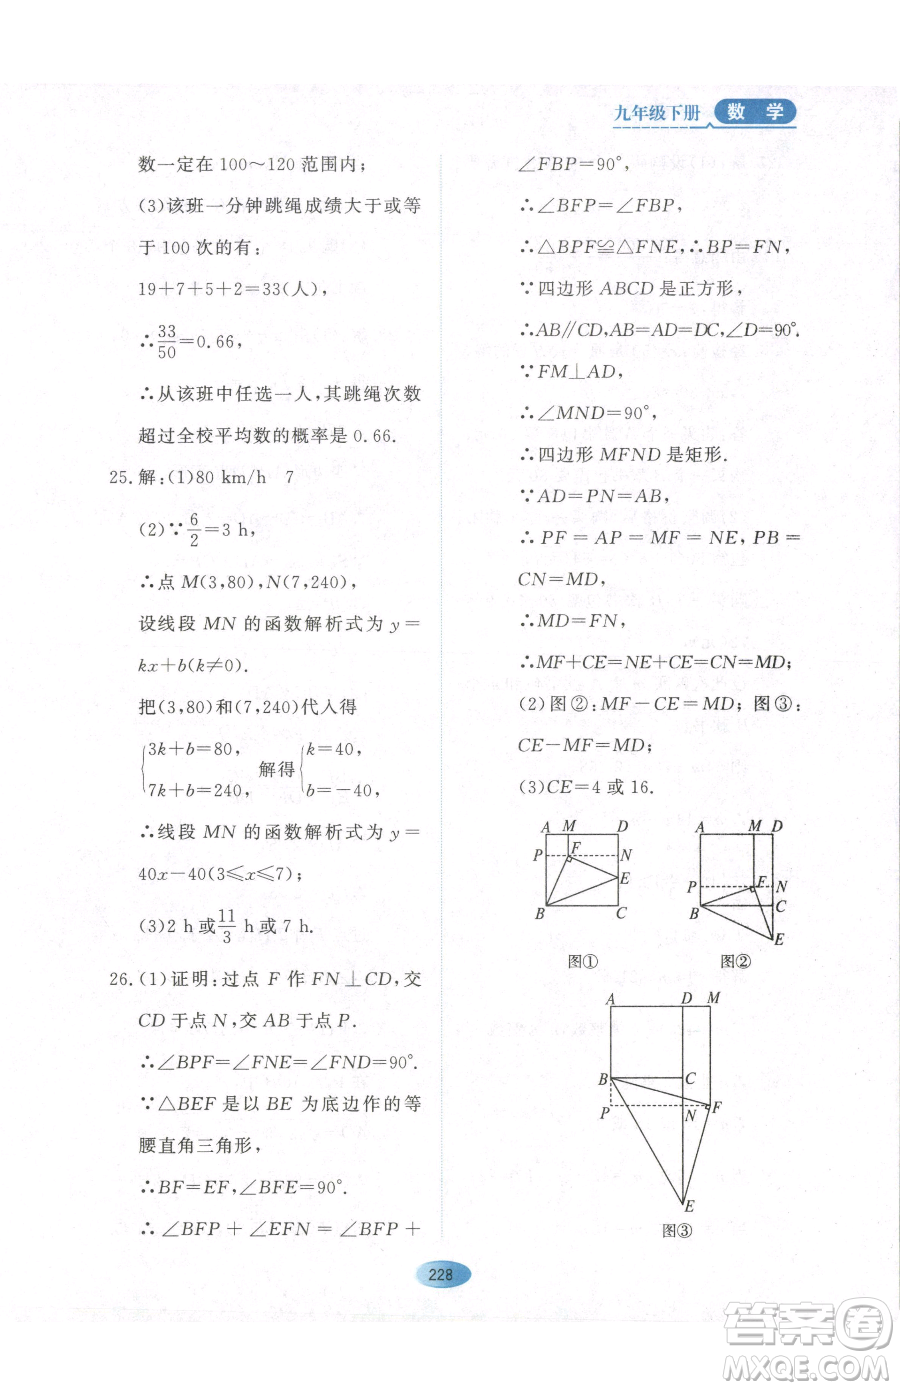 九年级下册 数 学
数一定在 100～120 范围内;
(3)该班一分钟跳绳成绩大于或等
于 100 次的有:
19+7+5+2=33(人),
∴33/50=0.66,
∴从该班中任选一人,其跳绳次数
超过全校平均数的概率是 0.66.
25.解:(1)80 km/h 7
(2)∵6/2=3 h,
∴点 M(3,80),N(7,240),
设线段 MN 的函数解析式为 y=
kx+b(k≠0).
把(3,80)和(7,240)代入得
{3k+b=80, 7k+b=240, 解得{k=40, b=-40,
∴线段 MN 的函数解析式为 y=
40x-40(3⩽x⩽7);
(3)2 h或11/3 h或 7 h.
26.(1)证明:过点 F 作 FN⊥CD,交
CD于点 N,交 AB 于点 P.
∴∠BPF=∠FNE=∠FND=90°.
∵△BEF 是以 BE 为底边作的等
腰直角三角形,
∴BF=EF,∠BFE=90°.
∴∠BFP+∠EFN=∠BFP+
∠FBP=90°,
∴∠BFP=∠FBP,
∴△BPF≌△FNE,∴BP=FN,
∵四边形 ABCD 是正方形,
∴AB∥CD,AB=AD=DC,∠D=90°.
∵FM⊥AD,
∴∠MND=90°,
∴四边形 MFND 是矩形.
∵AD=PN=AB,
∴PF=AP=MF=NE,PB=
CN=MD,
∴MD=FN,
∴MF+CE=NE+CE=CN=MD;
(2)图②:MF-CE=MD;图③:
CE-MF=MD;
(3)CE=4 或 16.
A M D
P F N
E
B C
图①
A M D
P F N
B C
E
图②
A D M
B C
P N F
E
图③
228
答案圈
MXQE.COM